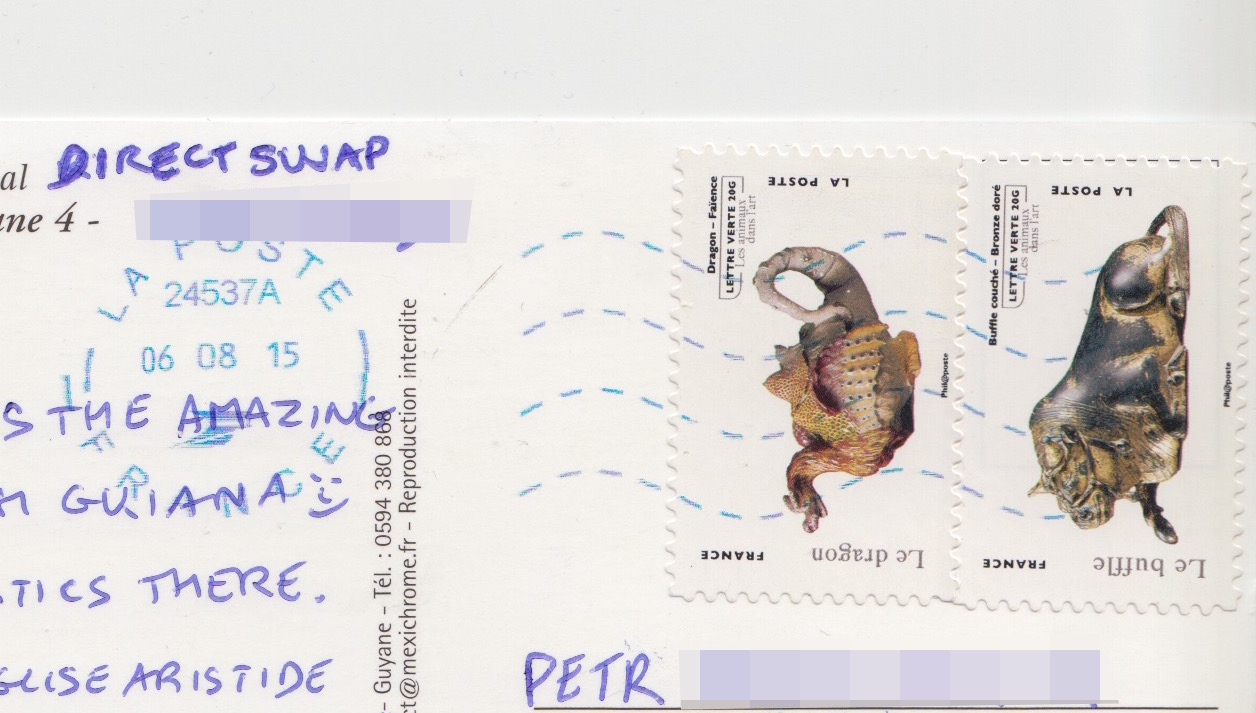 al DIRECT SWAP
ane 4 -
LA POSTE
24537A
06 08 15
FRANCE
S THE AMAZING
H GUIANA :)
TICS THERE.
GLISE ARISTIDE
- Guyane - Tél. : 0594 380 888
ct@mexichrome.fr - Reproduction interdite
LA POSTE
Dragon – Faïence
LETTRE VERTE 20G
Les animaux
dans l'art
Phil@poste
FRANCE
Le dragon
LA POSTE
Buffle couché – Bronze doré
LETTRE VERTE 20G
Les animaux
dans l'art
Phil@poste
FRANCE
Le buffle
PETR